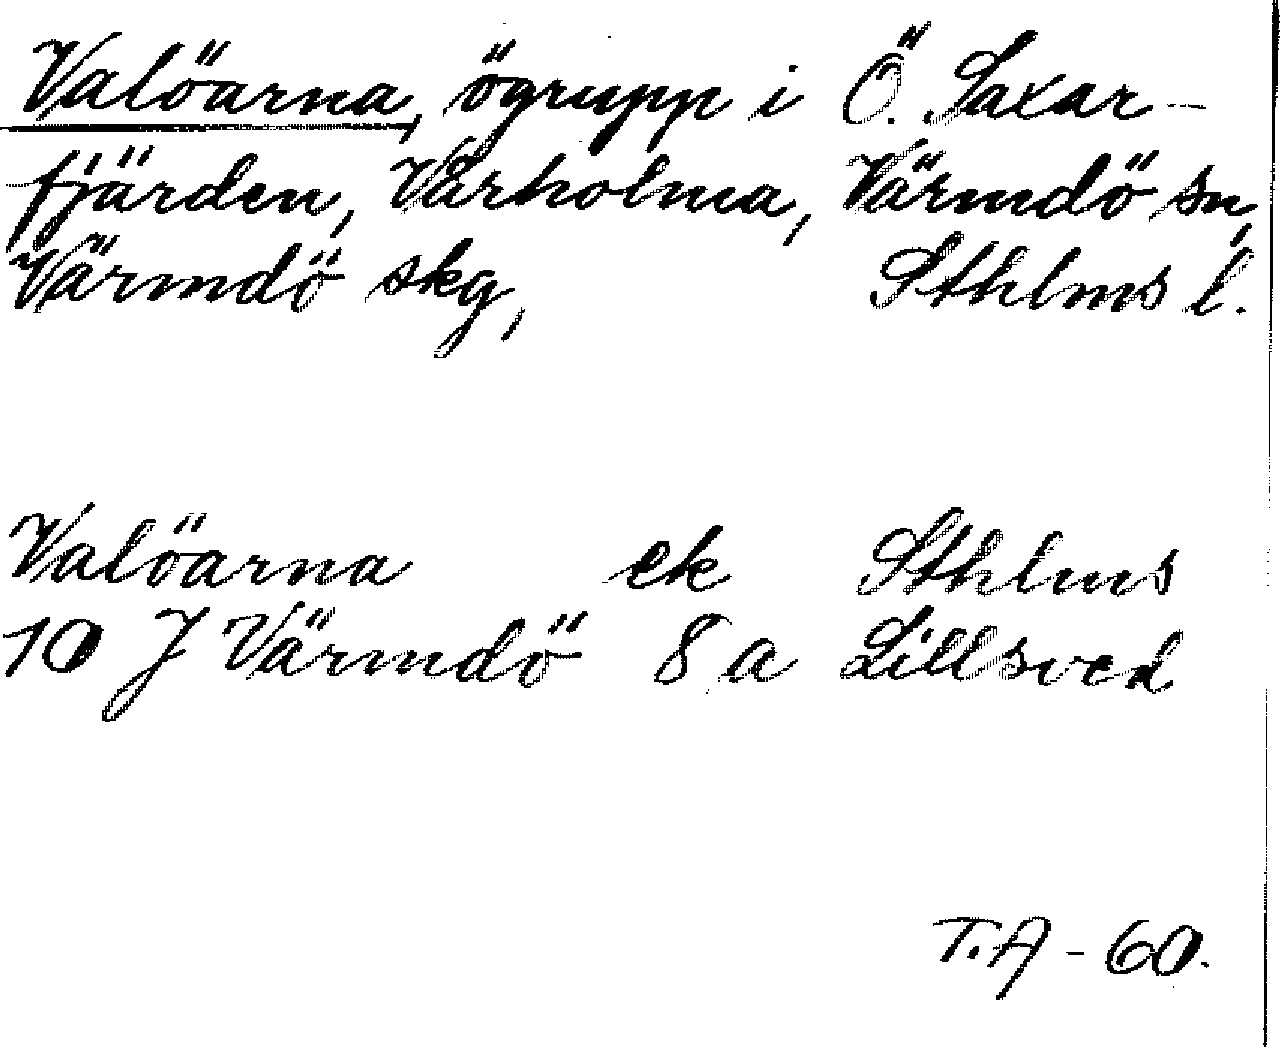 Valöarna, ögrupp i Ö. Saxar-
fjärden, Vårholma, Värmdö sn,
Värmdö skg, Sthlms l.
Valöarna ek Sthlms
10 J Värmdö 8 a Lillsved
T.A - 60.